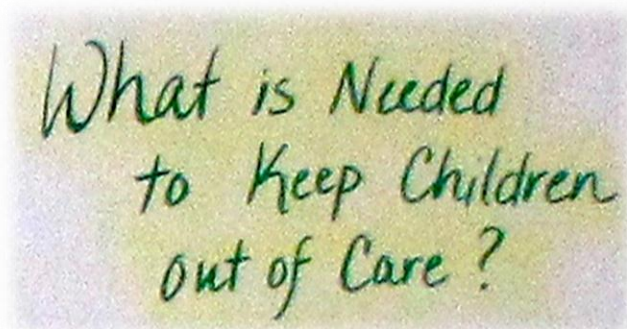 What is Needed
to Keep Children
out of Care?